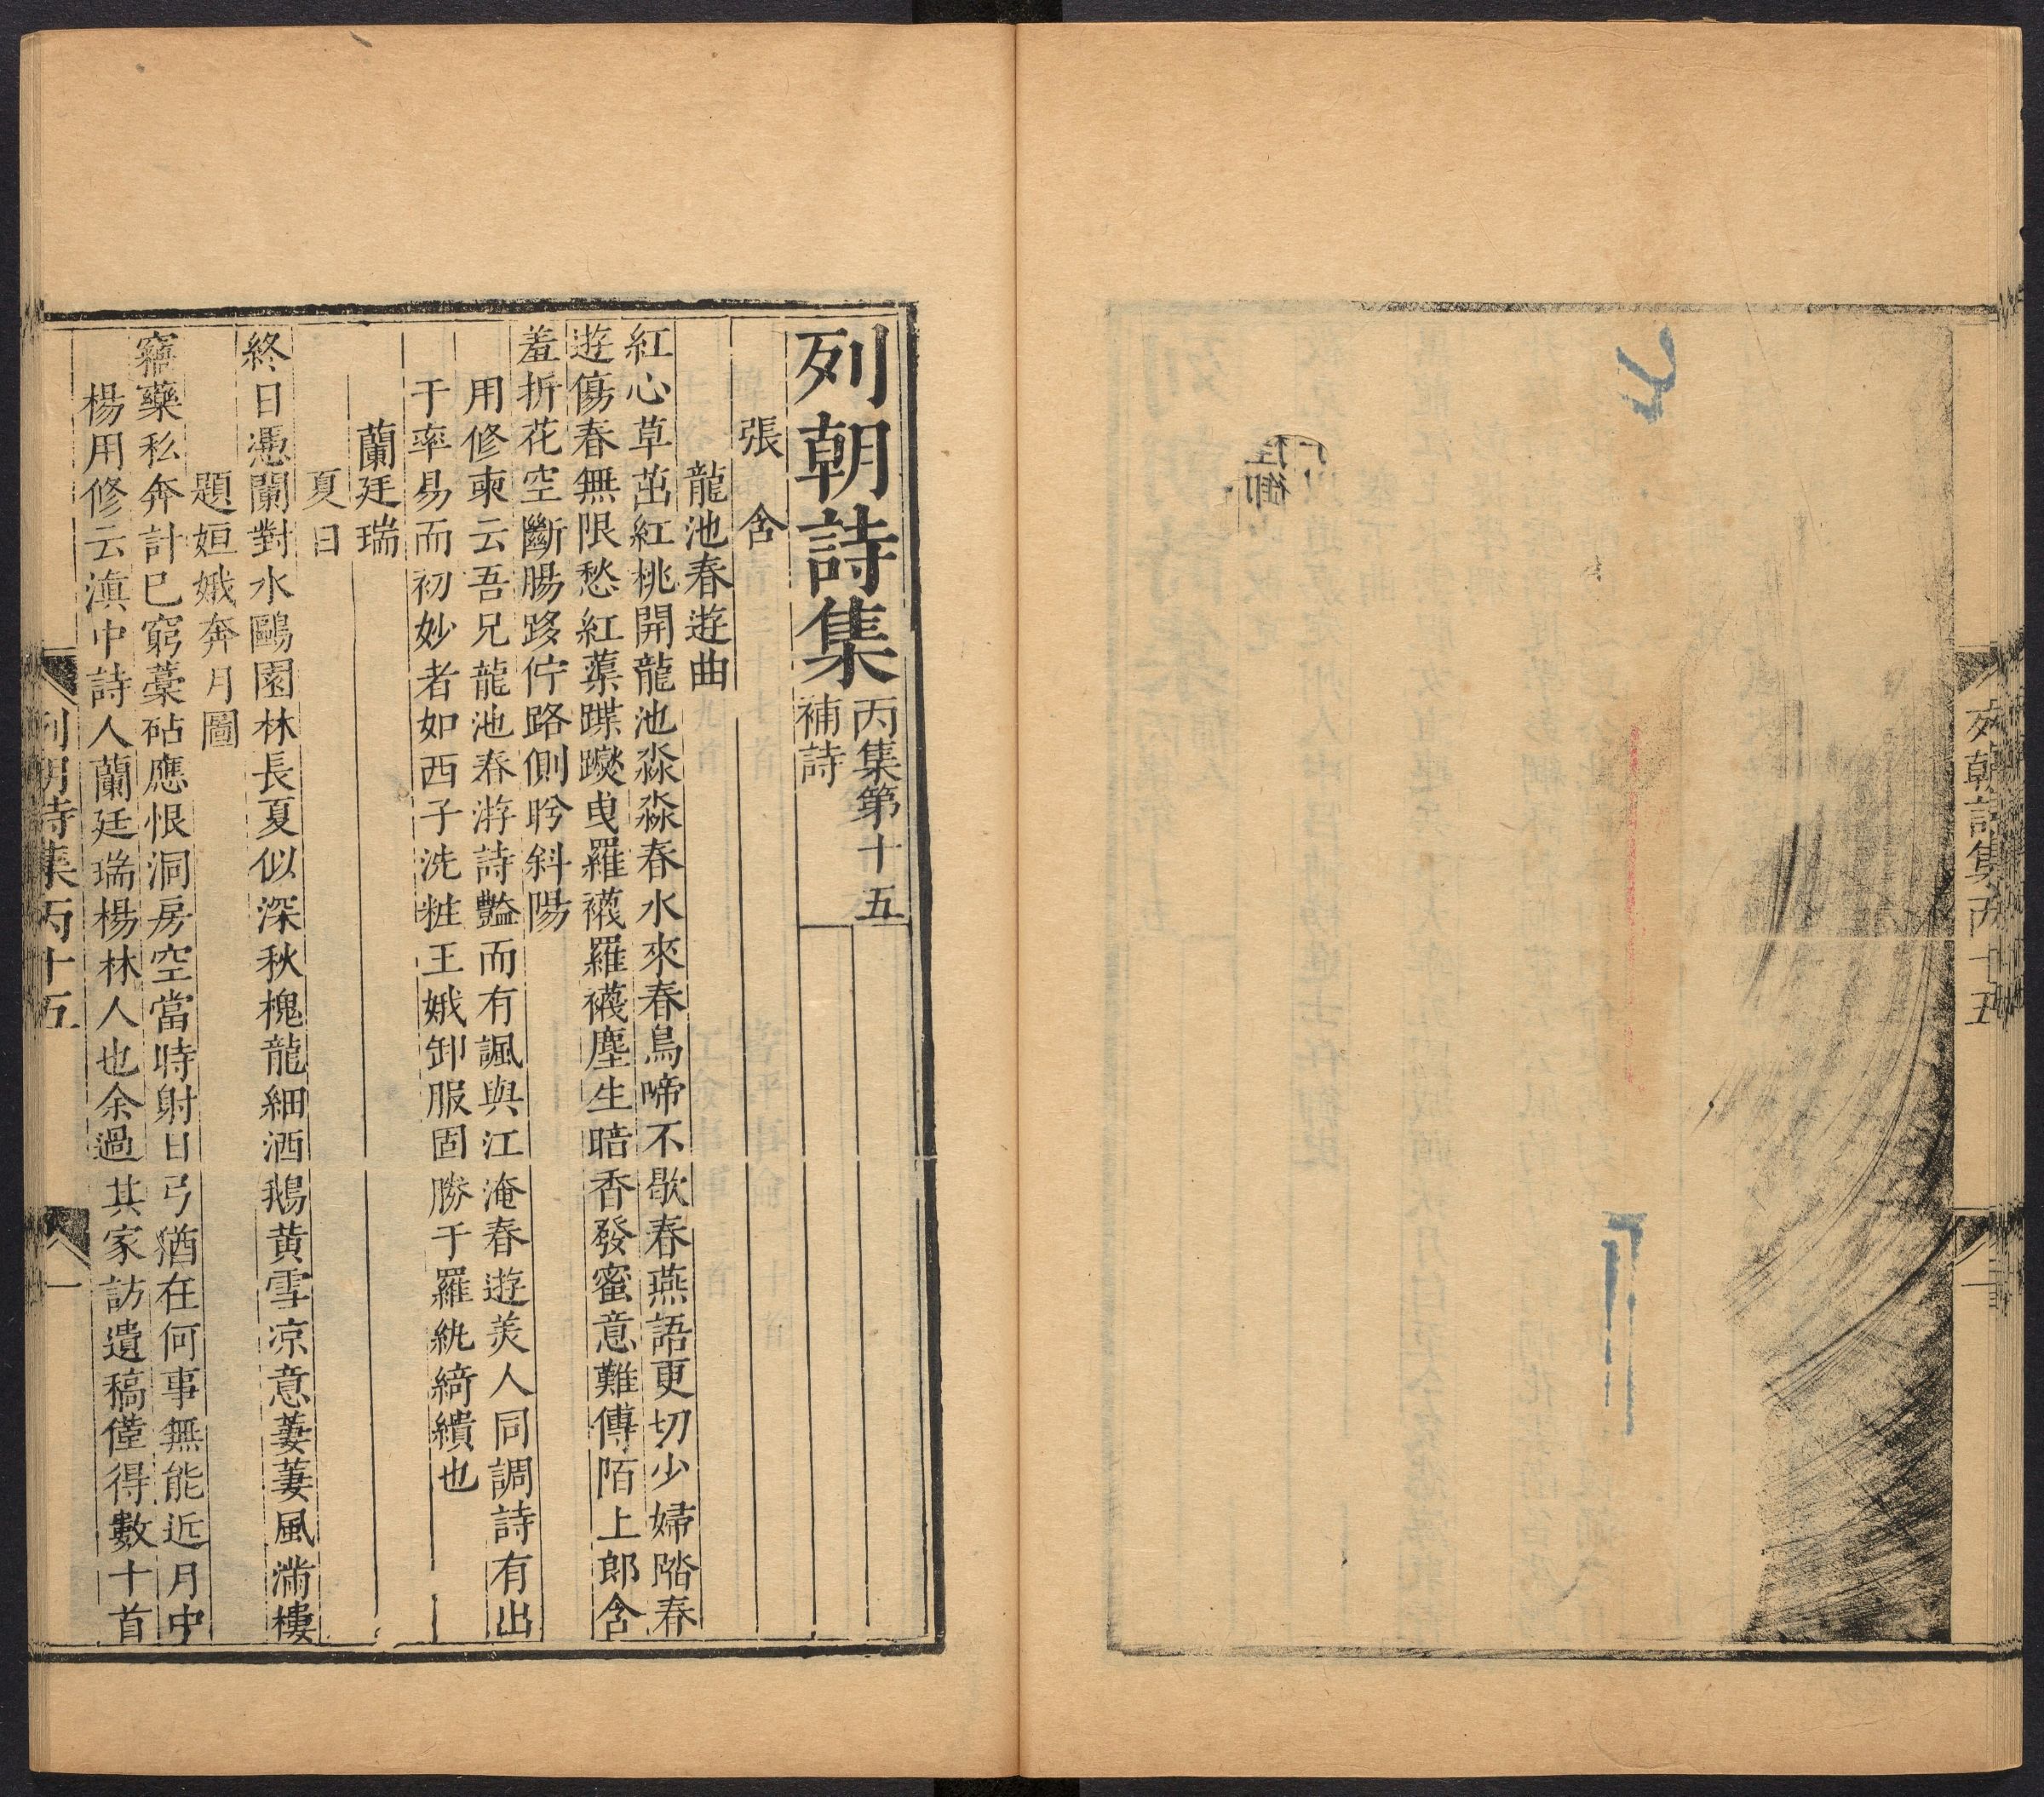 列朝詩集丙十五
一
列朝詩集
丙集第十五
補詩
張 含
龍池春遊曲
紅心草茁紅桃開龍池淼淼春水來春鳥啼不歇春燕語更切少婦踏春
遊傷春無限愁紅蕖蹀躞曳羅襪羅襪塵生暗香發蜜意難傳陌上郎含
羞折花空斷腸跢佇路側昣斜陽
用修柬云吾兄龍池春游詩豔而有諷與江淹春遊美人同調詩有出
于率易而初妙者如西子洗粧王娥卸服固勝于羅紈綺繢也
蘭廷瑞
夏日
終日憑闌對水鷗園林長夏似深秋槐龍細洒鵝黃雪凉意萋萋風滿樓
題姮娥奔月圖
竊藥私奔計已窮藁砧應恨洞房空當時射日弓猶在何事無能近月中
楊用修云滇中詩人蘭廷瑞楊林人也余過其家訪遺稿僅得數十首
列朝詩集丙十五
一